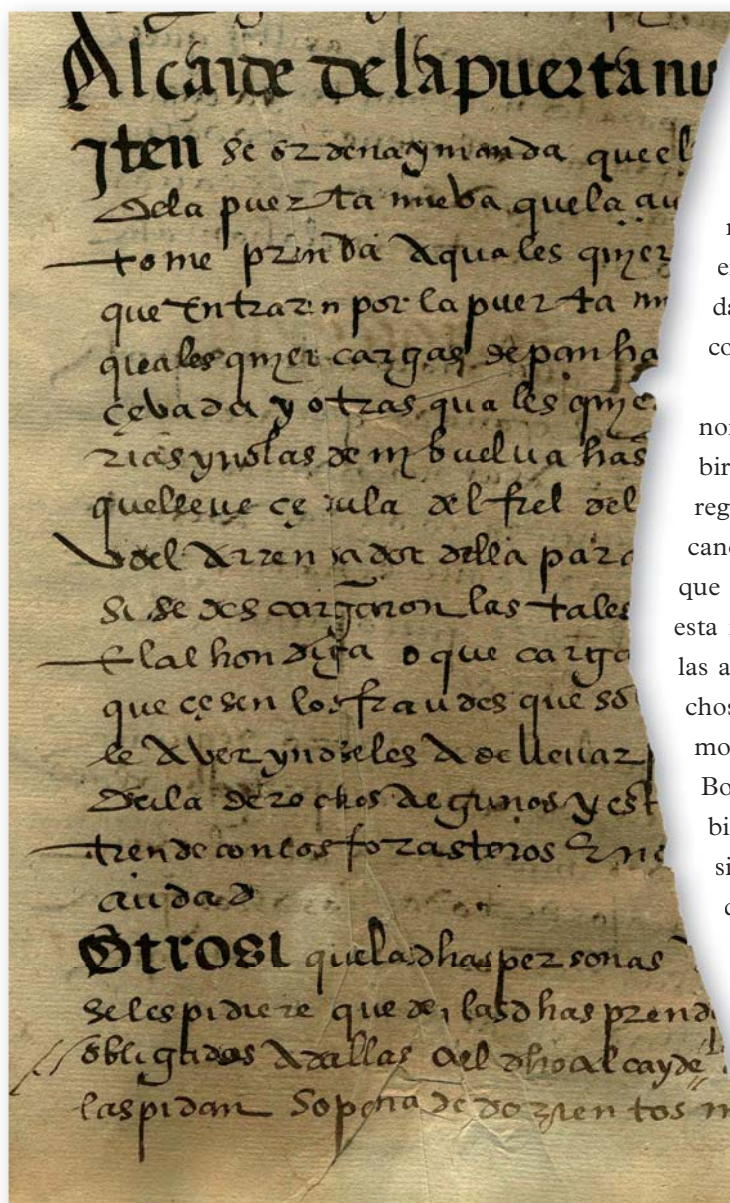 Alcaide de la puerta nu
Iten se ordena y manda que el
dela puerta nueba que la au
tome prenda a quales quier
que entraren por la puerta nu
quales quier cargas de pan ha
çevada y otras quales quie
rias y no las de ni buelua has
que lleue çedula del fiel del
v del arrendador della para
si se descargaron las tales
en la alhondiga o que carga
que çesen los fraudes que so
le aver y no se les a de lleuar
dello derechos algunos y est
tiende con los forasteros
ciudad
Otrosi que las dhas personas
se les pidiere que den las dhas prend
obligados a dallas al dho alcayde
las pidan so pena de dozientos m
r
e
da
co
nor
bir
reg
cano
que
esta
las a
chos
mo
Bo
bi
si
c